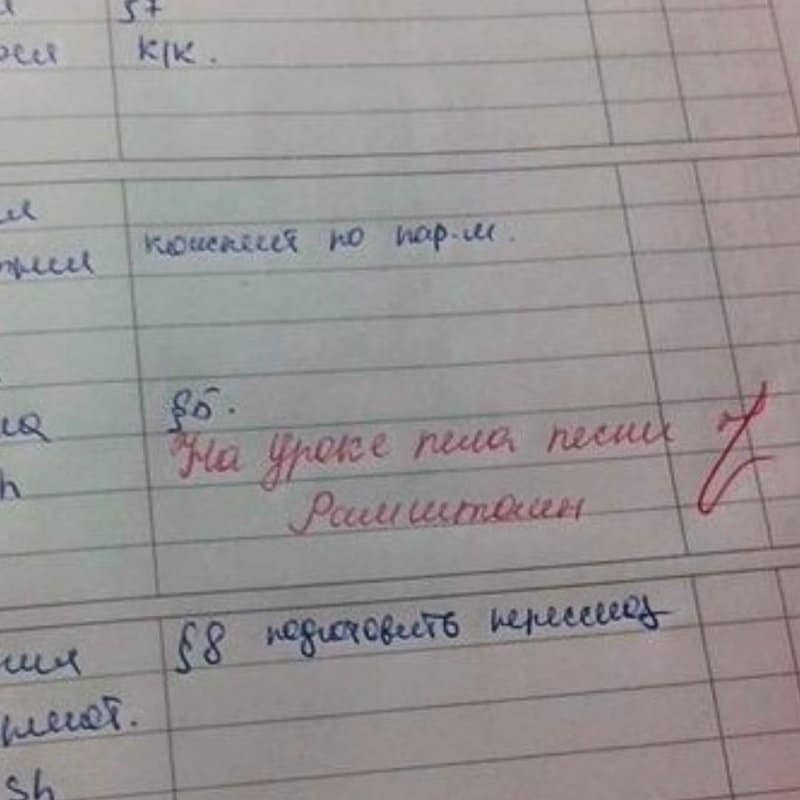 §7
к/к.
конспект по пар-м.
§5.
На уроке пела песни
Рамштайн
§8 подготовить пересказ
sh